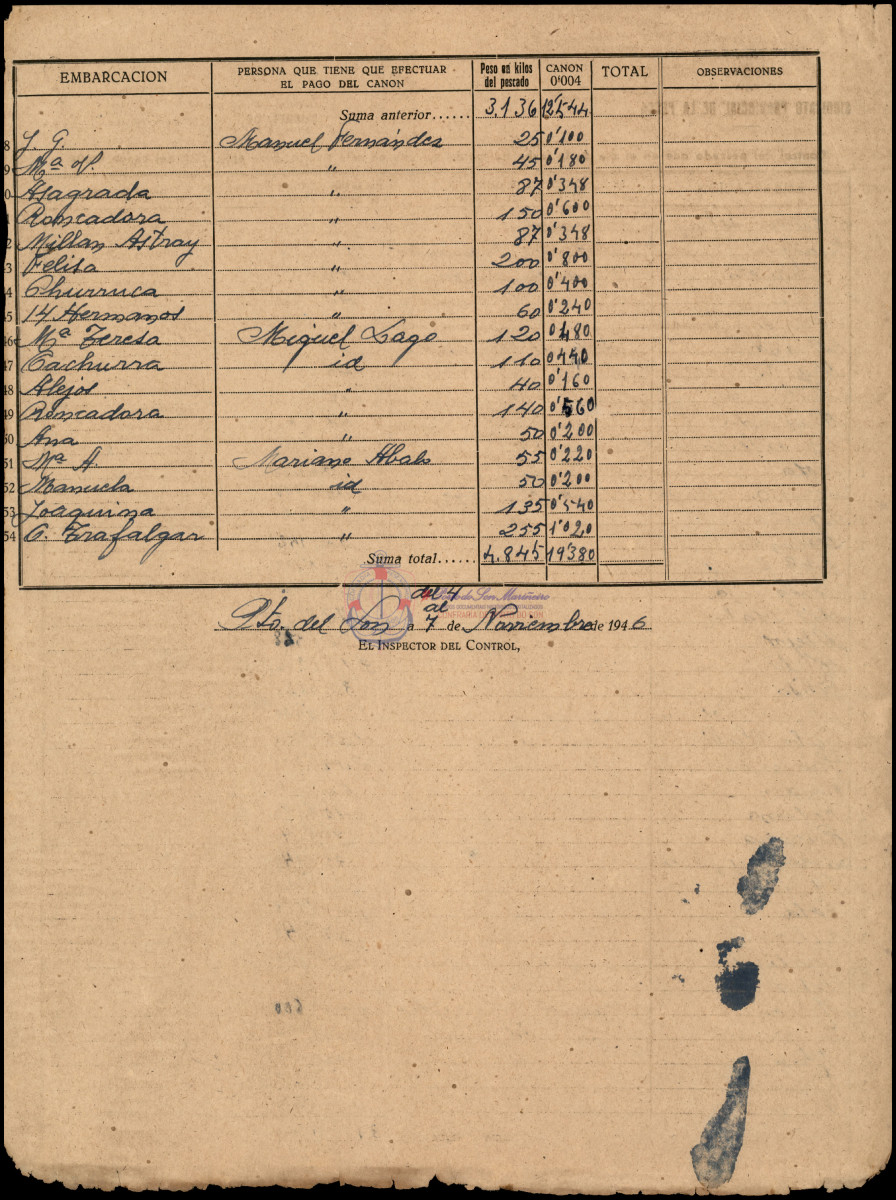 EMBARCACION PERSONA QUE TIENE QUE EFECTUAR EL PAGO DEL CANON Peso en kilos del pescado CANON 0'004 TOTAL OBSERVACIONES
Suma anterior...... 3.136 12'544
8 J. G. Manuel Fernández 25 0'100
9 Mª " 45 0'180
0 Asagrada " 87 0'348
1 Roncadora " 150 0'600
2 Millan Astray " 87 0'348
3 Felisa " 200 0'800
4 Churruca " 100 0'400
5 14 Hermanos " 60 0'240
46 Mª Teresa Miguel Lago 120 0'480
47 Cachurra id 110 0'440
48 Alejos " 40 0'160
49 Roncadora " 140 0'560
50 Ana " 50 0'200
51 Mª A. Mariano Abalo 55 0'220
52 Manuela id 50 0'200
53 Joaquina " 135 0'540
54 C. Trafalgar " 255 1'020
Suma total...... 4.845 19'380
del 4
al
Pto. del Son a 7 de Noviembre de 1946
EL INSPECTOR DEL CONTROL,